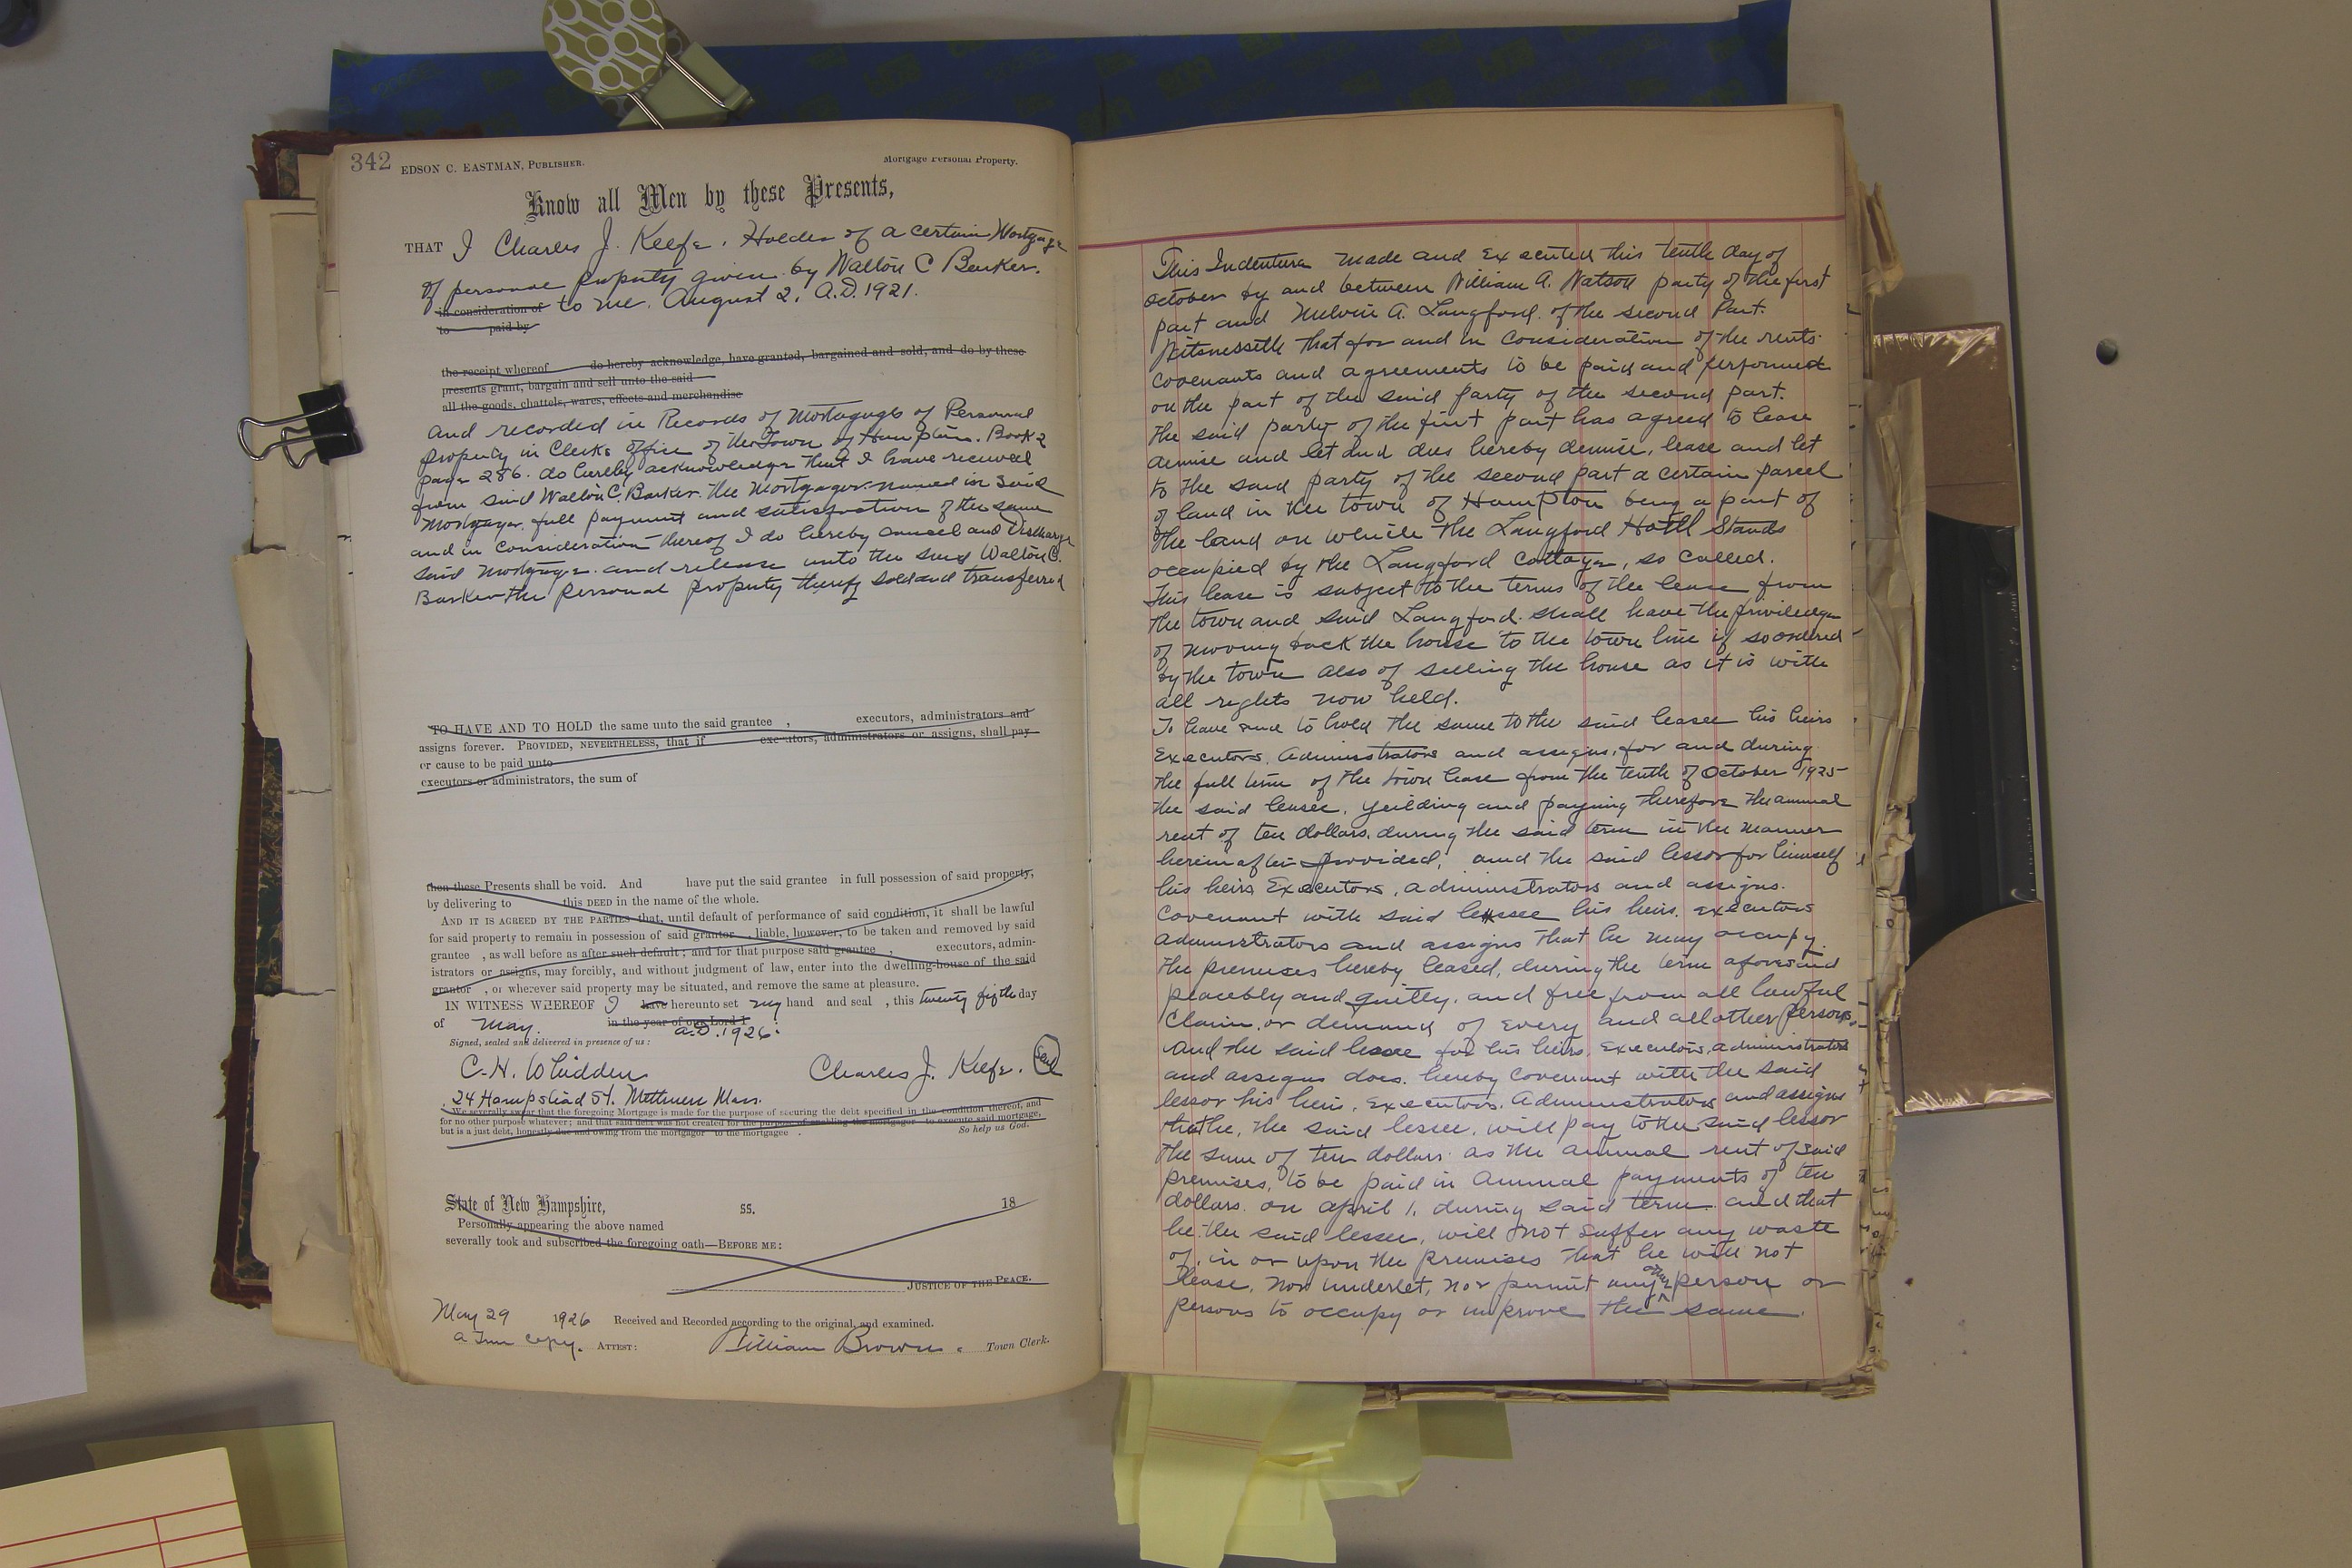 342 EDSON C. EASTMAN, PUBLISHER. Mortgage Personal Property.
Know all Men by these Presents,
THAT I Charles J. Keefe. Holder of a certain Mortgage
of personal property given by Walton C Barker.
in consideration of to me. August 2, A.D. 1921.
to paid by
the receipt whereof do hereby acknowledge, have granted, bargained and sold, and do by these
presents grant, bargain and sell unto the said
all the goods, chattels, wares, effects and merchandise
and recorded in Records of Mortagages of Personal
property in Clerks office of the Town of Hampton. Book 2
page 286. do hereby acknowledge that I have received
from said Walton C. Barker. the Mortgager named in said
Mortgage. full payment and satisfaction of the same
and in consideration thereof I do hereby cancel and Discharge
said Mortgage. and release unto the said Walton C.
Barker the personal property thereby sold and transferred
TO HAVE AND TO HOLD the same unto the said grantee , executors, administrators and
assigns forever. PROVIDED, NEVERTHELESS, that if executors, administrators or assigns, shall pay
or cause to be paid unto
executors or administrators, the sum of
then these Presents shall be void. And have put the said grantee in full possession of said property,
by delivering to this DEED in the name of the whole.
AND IT IS AGREED BY THE PARTIES that, until default of performance of said condition, it shall be lawful
for said property to remain in possession of said grantor , liable, however, to be taken and removed by said
grantee , as well before as after such default; and for that purpose said grantee , executors, admin-
istrators or assigns, may forcibly, and without judgment of law, enter into the dwelling-house of the said
grantor , or wherever said property may be situated, and remove the same at pleasure.
IN WITNESS WHEREOF I have hereunto set my hand and seal , this twenty fifth day
of May. in the year of our Lord 1
A.D. 1926.
Signed, sealed and delivered in presence of us:
C. H. Whidden Charles J. Keefe. Seal
24 Hampstead St. Methuen Mass.
We severally swear that the foregoing Mortgage is made for the purpose of securing the debt specified in the condition thereof, and
for no other purpose whatever; and that said debt was not created for the purpose of enabling the mortgagor to execute said mortgage,
but is a just debt, honestly due and owing from the mortgagor to the mortgagee . So help us God.
State of New Hampshire, SS. 18
Personally appearing the above named
severally took and subscribed the foregoing oath—BEFORE ME:
JUSTICE OF THE PEACE.
May 29 1926 Received and Recorded according to the original, and examined.
a True copy. ATTEST: William Brown. Town Clerk.
This Indenture made and Executed this tenth day of
October by and between William A. Watson party of the first
part and Melvin A. Langford. of the second Part.
Witnesseth that for and in consideration of the rents
covenants and agreements to be paid and performed
on the part of the said party of the second part.
the said party of the first part has agreed to lease
demise and let and does hereby demise, lease and let
to the said party of the second part a certain parcel
of land in the town of Hampton being a part of
the land on which the Langford Hotel Stands
occupied by the Langford Cottage, so called.
this lease is subject to the terms of the lease from
the town and said Langford. shall have the priviledge
of moving back the house to the town line if so ordered
by the town also of selling the house as it is with
all rights now held.
To have and to hold the same to the said leasee his heirs
Executors, Administrators and assigns, for and during
the full term of the town lease from the tenth of October 1925
the said leasee, yeilding and paying therefore the annual
rent of ten dollars, during the said term in the manner
hereinafter provided, and the said lessor for himself
his heirs Executors, administrators and assigns.
Covenant with said lessee his heirs, executors
administrators and assigns that he may occupy
the premises hereby leased, during the term aforesaid
peacebly and quitly, and free from all lawful
Claim, or demand of every and all other persons.
And the said lessee for his heirs, Executors, administrators
and assigns does. hereby covenant with the said
lessor his heirs, Executors, Administrators and assigns
that he, the said lessee, will pay to the said lessor
the sum of ten dollars as the annual rent of said
premises, to be paid in annual payments of ten
dollars. on april 1, during said term and that
he the said lessee, will not suffer any waste
of, in or upon the premises that he will not
lease, nor underlet, nor permit any other person or
persons to occupy or improve the same.